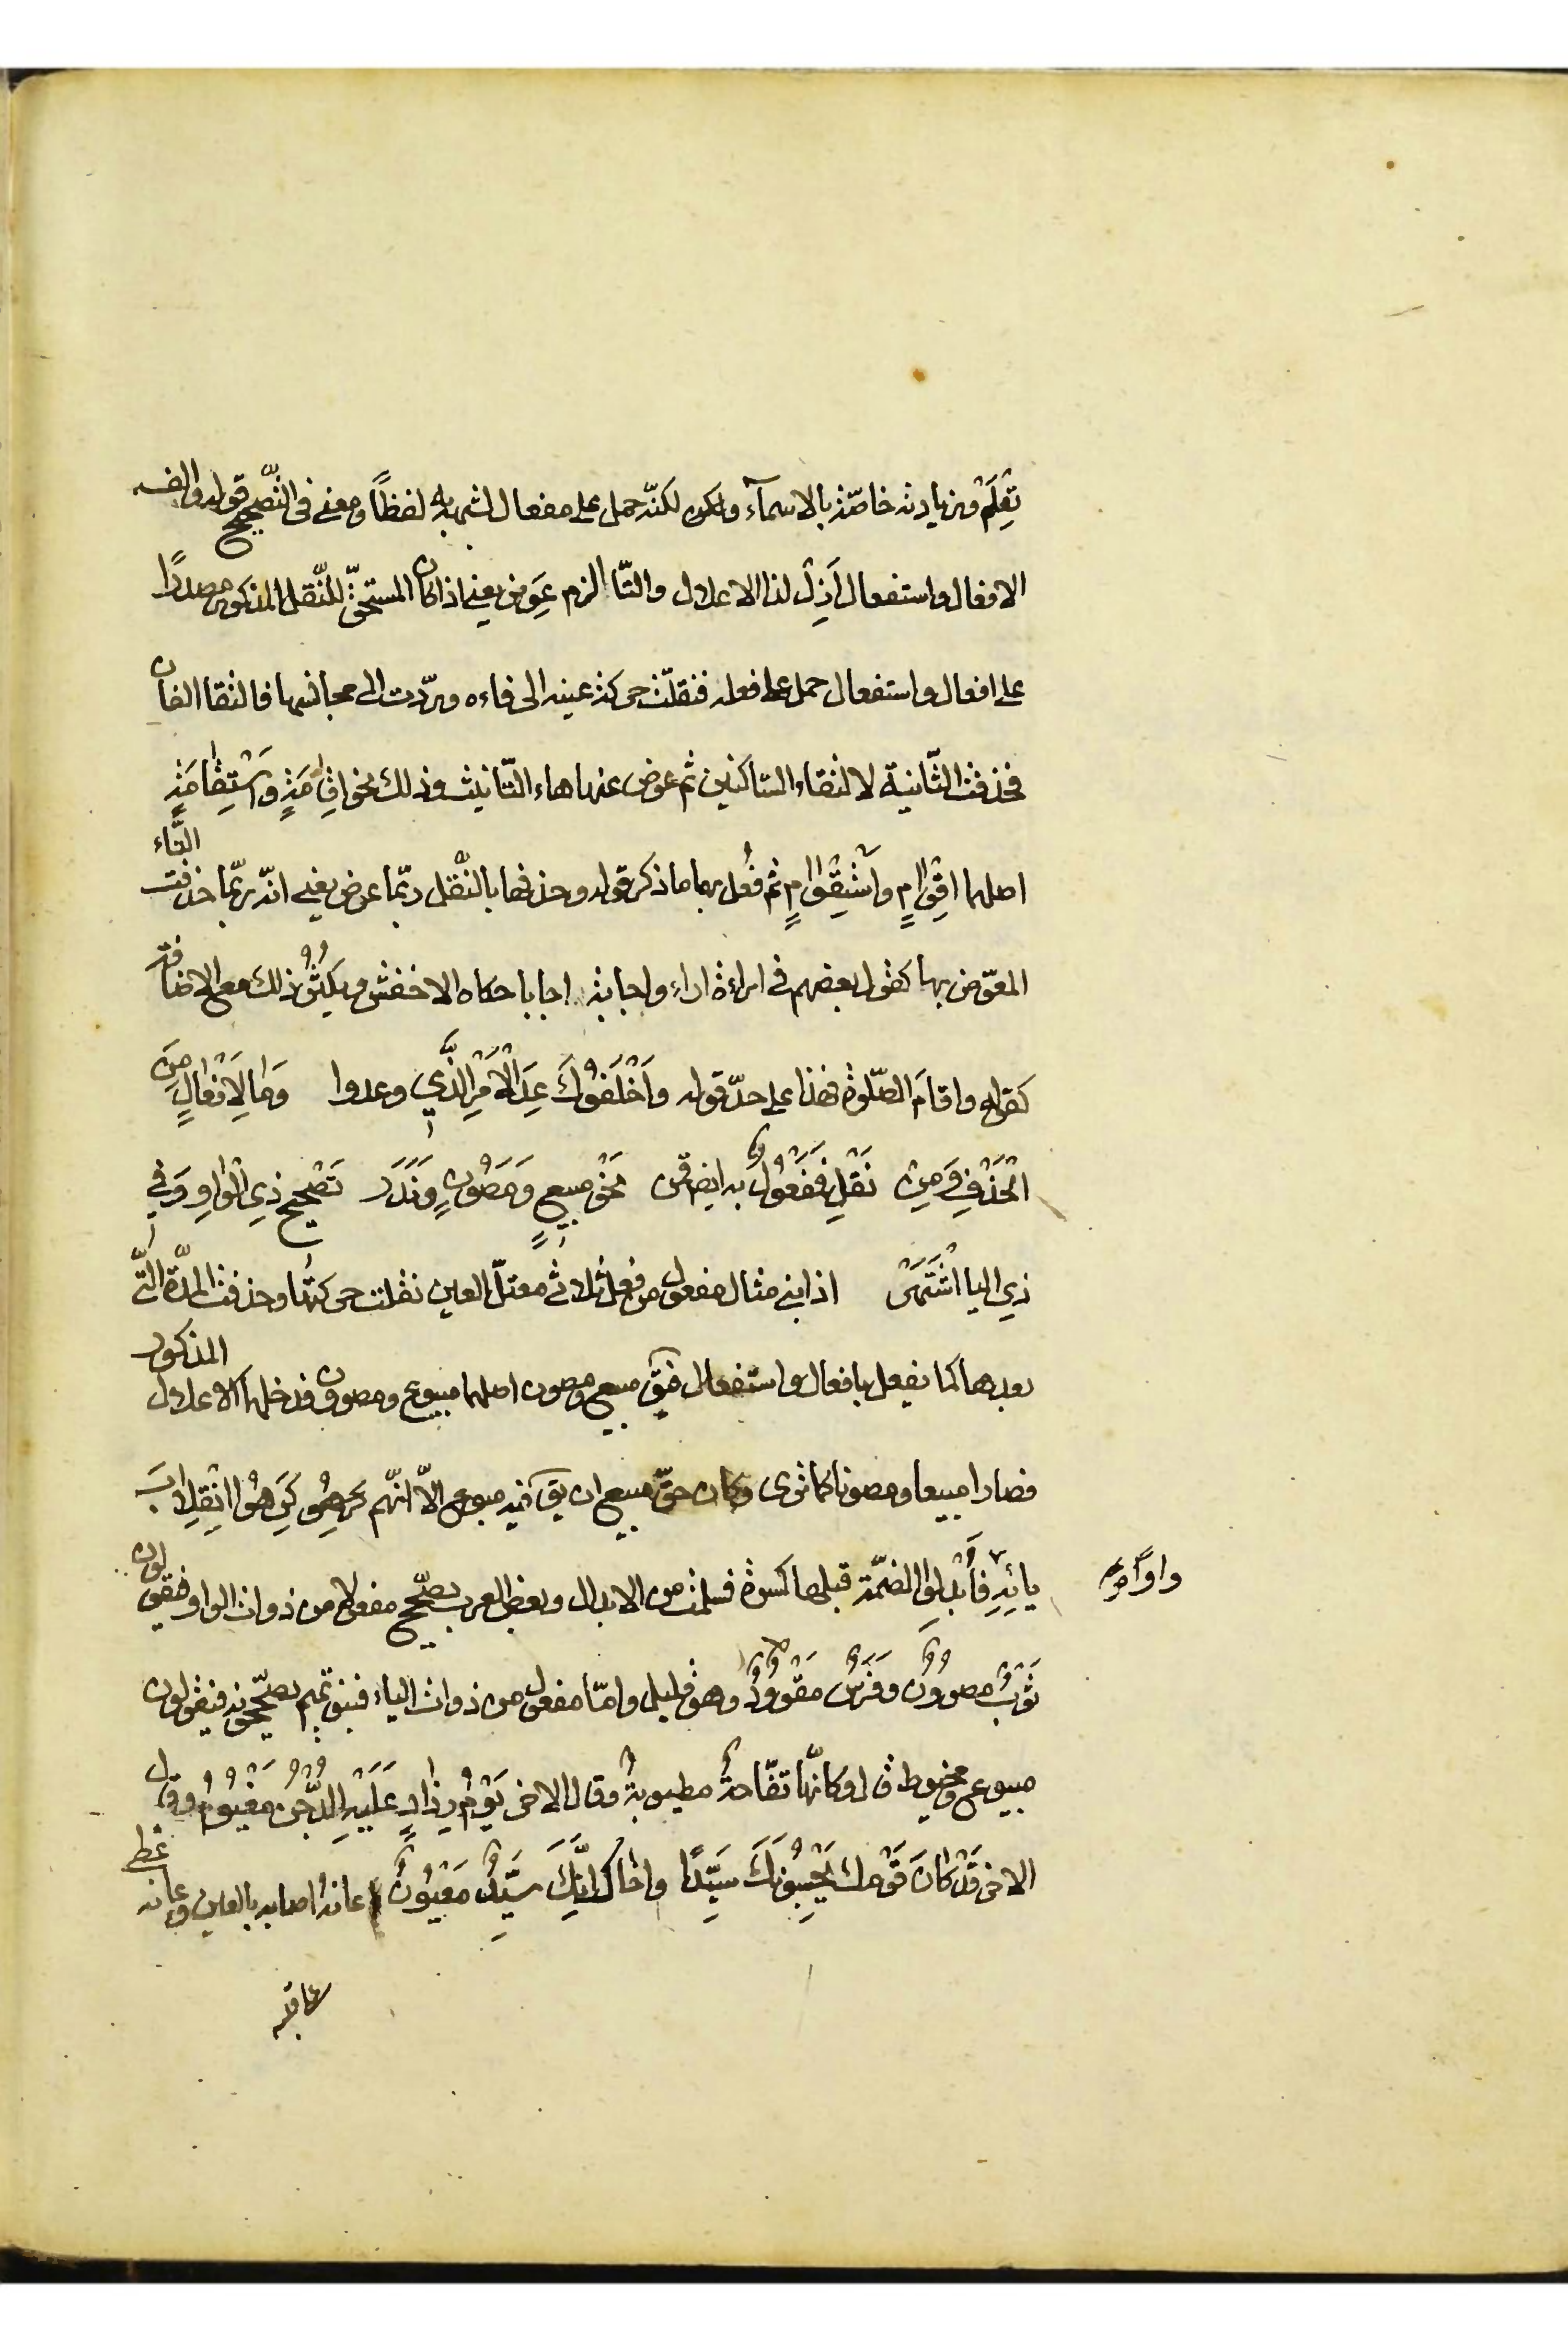 تِعْلَمْ وزيادته خاصّة بالاسمآء ولكن لكنّه حمل على مفعال لشبهه به لفظًا ومعنى فى التّصحيح قوله والف
الافعال واستفعال اَزِلْ لذا الاعلال والتّا الزم عِوَض يعني اذا كان المستحقّ للنّقل المذكور مصدرًا
على افعال واستفعال حمل على فعله فنقلت حركة عينه الى فاءه وردّت الى مجانسها فالتقا الفان
فحذفت الثّانية لالتقاء السّاكنين ثم عوض عنها هاء التّانيث وذلك نحو اِقٰامَةٍ وَاسْتِقٰامَةٍ
اصلهما اقِوْامٍ وَاسْتِقْوٰامٍ ثم فُعل بهما ما ذكر قوله وحذفها بالنّقل ربّما عرض يعني انّه ربّما حذفت التّاء
المعوّض بها كقول بعضهم فى اراءة اراء واجابة اجابا حكاه الاخفش ويكثُرُ ذلك مع الاضافة
كقوله واقامَ الصّلوة فهذا على حدّ قوله وَاَخْلَفُوكَ عِدَ الْاَمْرِ الَّذي وعدوا وَمٰا لِاِفْعٰالٍ مِنَ
الْحَذْفِ وَمِنْ نَقْلٍ فَمَفْعُولٌ به ايضا قمن نَحْوُ مبيعٍ وَمَصُونٍ وَنَدَرَ تَصْحيحُ ذِي الْوٰاوِ وَفي
ذِي اليا اشْتَهَرَ اذا بني مثال مفعول من فعل ثلاثي معتلّ العين نقلت حركتها وحذفت المدّة الّتي
بعدها كما يفعل بافعال واستفعال فيق مبيع ومصون اصلهما مبيوع ومصوون فدخلهما الاعلال المذكور
فصارا مبيعا ومصونا كما ترى وكان حقّ مبيع ان يق فيه مبوع الاّ انّهم كَرِهُوا انْقِلٰابَ
يائِهِ واوًا فَاَبْدَلوا الضمّة قبلها كسرة فسلمت من الابدال وبعض العرب يصحّح مفعولا من ذوات الواو فيقولون
ثَوْبٌ مصوُونٌ وَفَرَسٌ مَقْوُودٌ وهو قليل وامّا مفعول من ذوات الياء فبنو تميم يصحّحونه فيقولون
مبيوع ومخيوط قال وكانّها تفّاحةٌ مطيوبةٌ وقال الاخر يَوْمُ رذاذٍ عَلَيْهِ الدَّجْنُ مَغْيُومُ وقال
الاخر قَدْ كٰانَ قَوْمك يَحْسِبُونَكَ سَيِّدًا واخال انَّكَ سَيِّدٌ مَعْيُونٌ عانه اصابه بالعين وعانه غطى
عاقبه